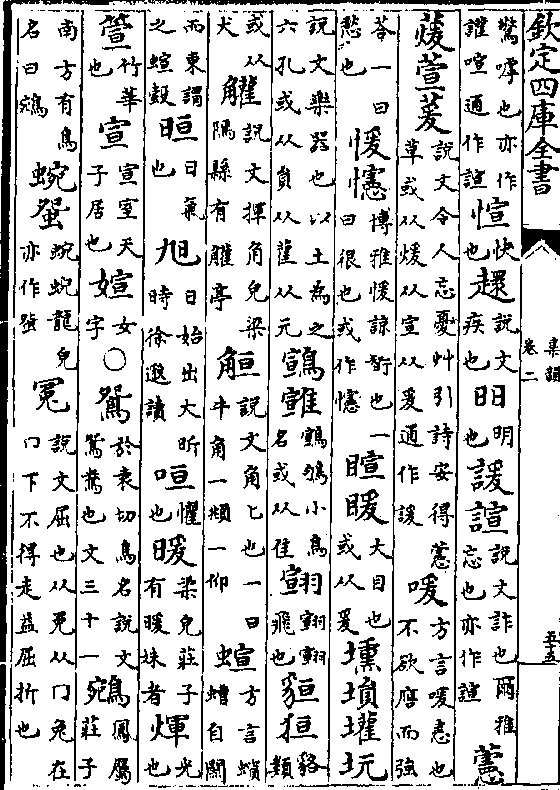 欽定四庫全書
集韻
卷二
五十五
驚嘑也亦作讙喧通作諠 愃 快也 趯 說文疾也 昍 明也 諼諠 說文詐也爾雅忘也亦作諠 藼
蕿萱萲 說文令人忘憂艸引詩安得藼草或从煖从宣从爰通作諼 喛 方言喛恚也不欲譍而強
荅一曰愁也 愋憲 博雅愋諒智也一曰很也或作憲 暄暖 大目也或从爰 壎塤壦坃
說文樂器也以土為之六孔或从員从雚从元 鶱鴉小鳥名或从隹 翧 翧翧飛也 貆狟 貉類
或从犬 䚭 說文揮角皃梁隝縣有䚭亭 觛 說文角匕也一曰牛角一頫一仰 蝖 方言蠀螬自關
而東謂之蝖螜 晅 日氣也 旭 日始出大昕時徐邈讀 咺 懼也 暖 柔皃莊子有暖姝者 煇 光也
䈣 竹華也 宣 宣室天子居也 媗 女字 ○ 鴛 於袁切鳥名說文鴛鴦也文三十一 鵷 鳳屬莊子
南方有鳥名曰鵷 蜿 蜿蜿龍皃亦作 冤 說文屈也从兔从冂兔在冂下不得走益屈折也